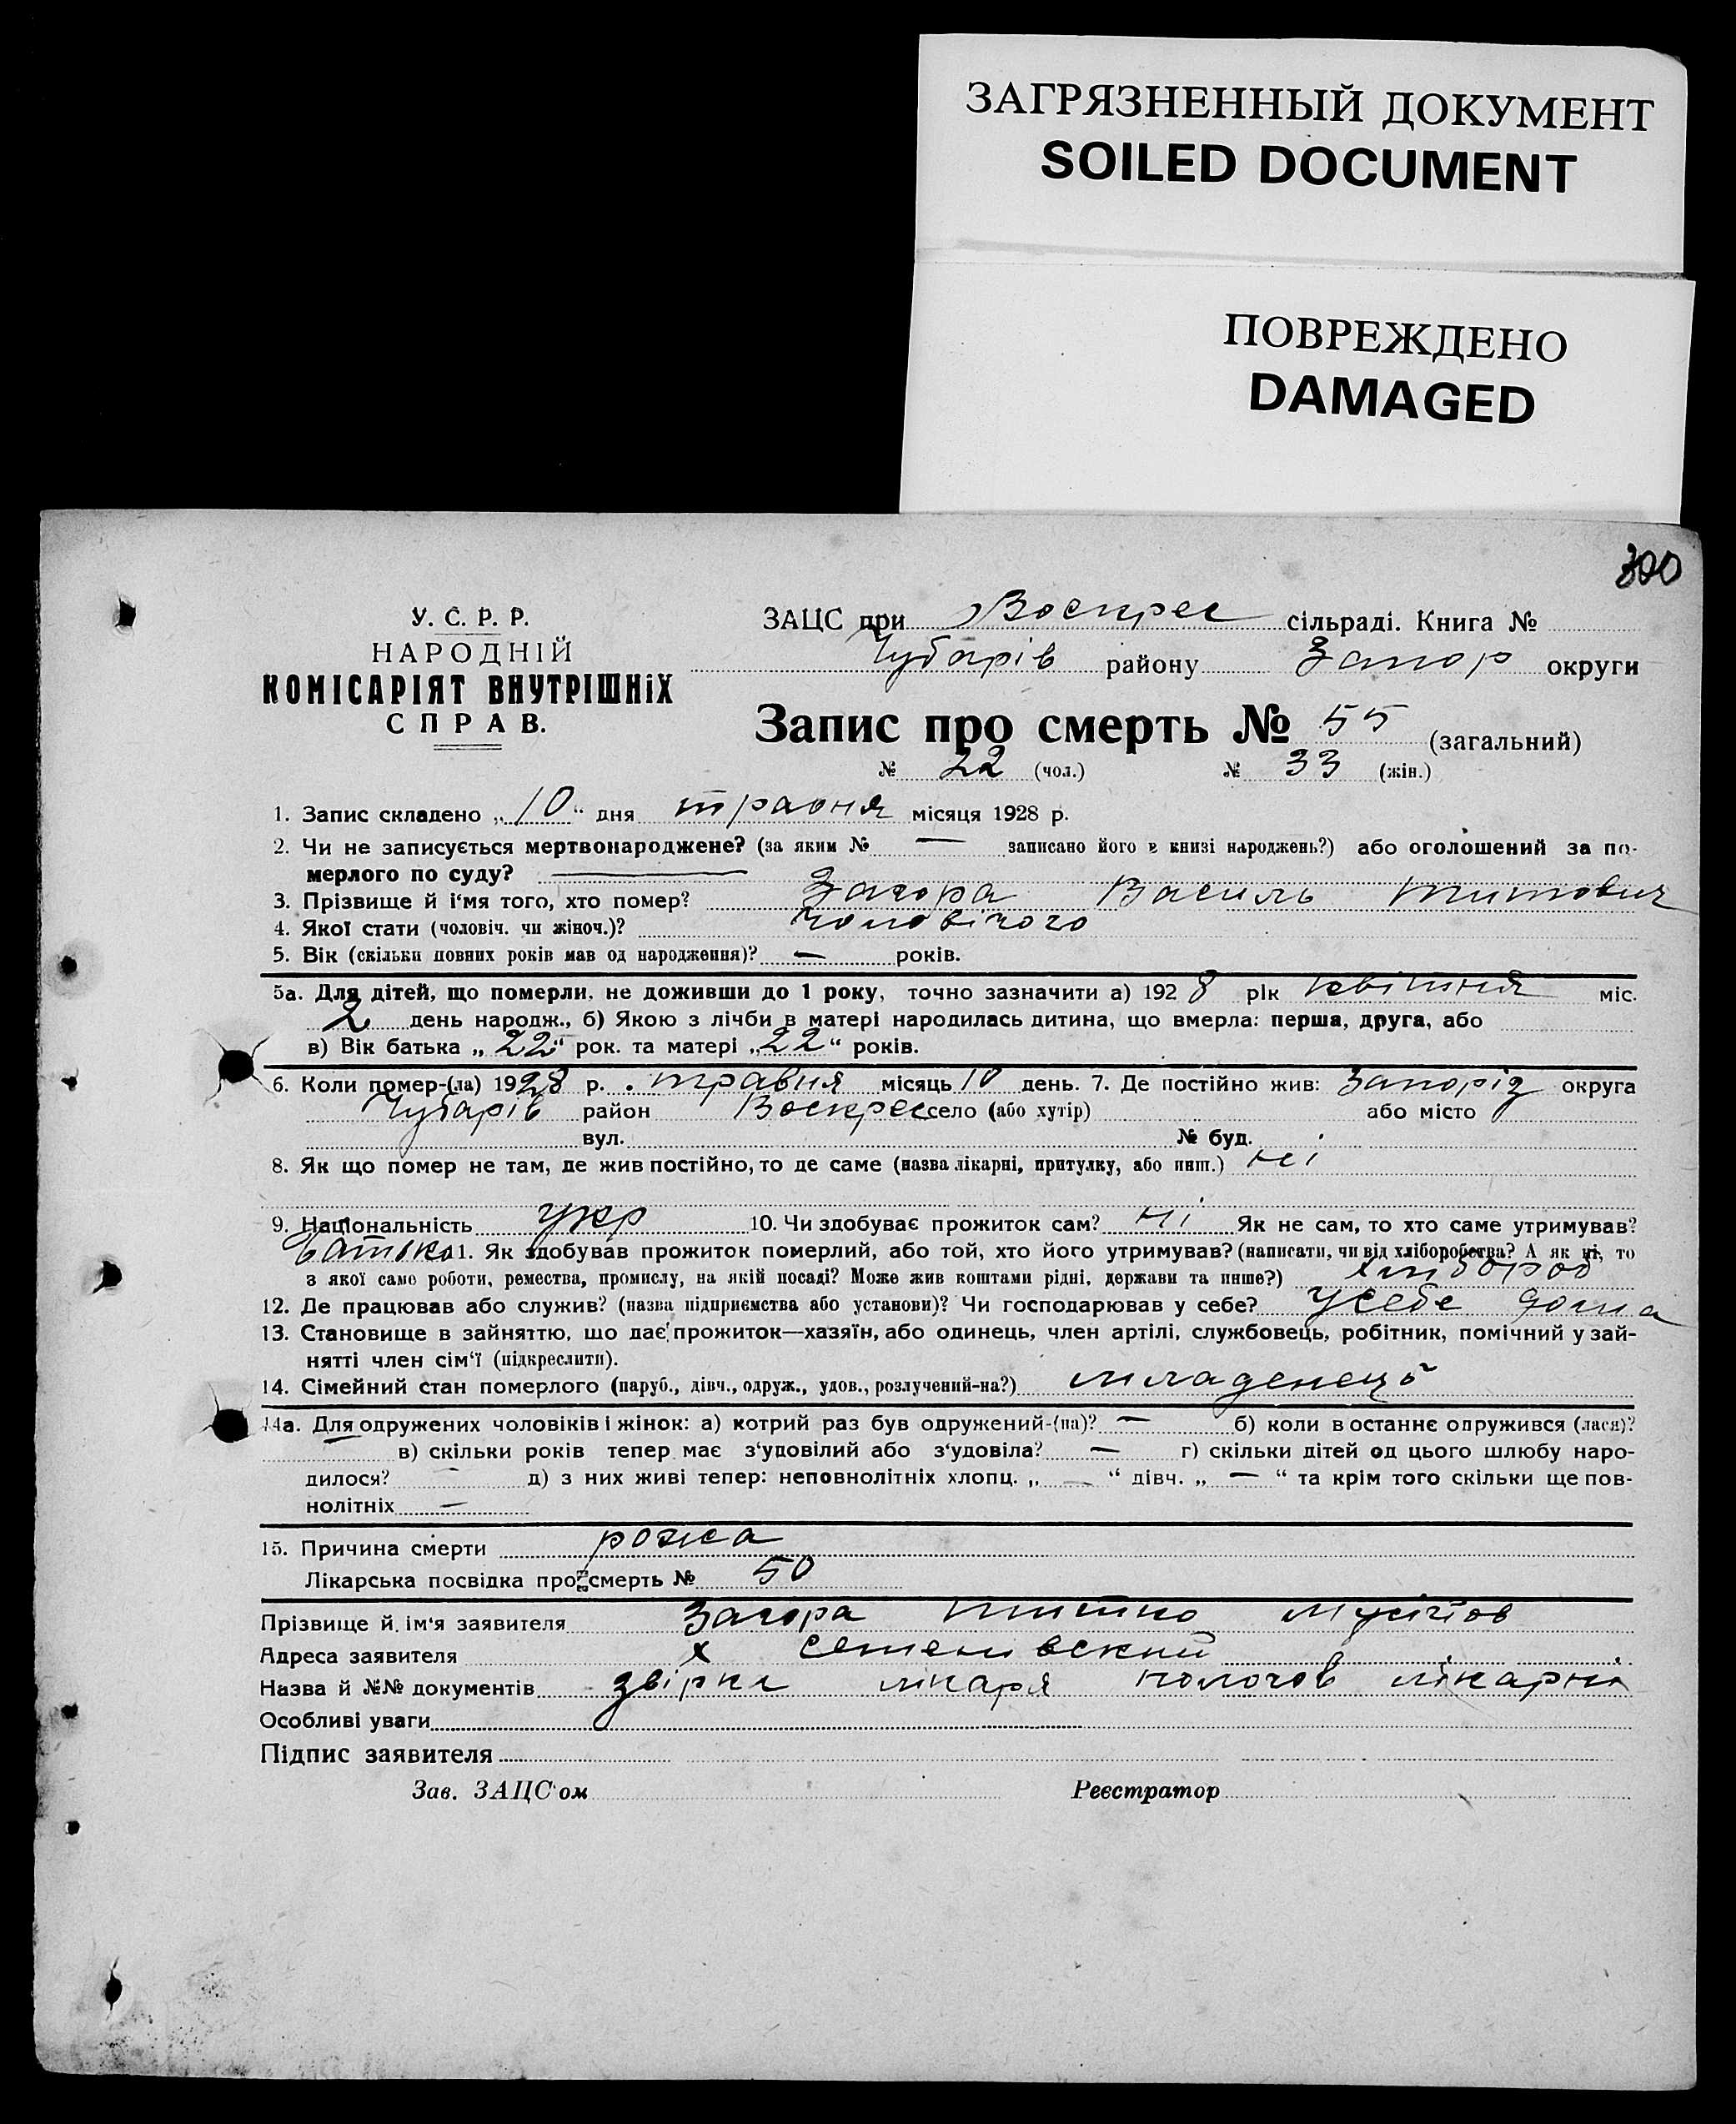 ЗАГРЯЗНЕННЫЙ ДОКУМЕНТ
SOILED DOCUMENT
ПОВРЕЖДЕНО
DAMAGED
300
У. С. Р. Р.
НАРОДНІЙ
КОМІСАРІЯТ ВНУТРІШНІХ
СПРАВ.
ЗАЦС при Воскрес сільраді. Книга №
Чубарів району Запор округи
Запис про смерть № 55 (загальний)
№ 22 (чол.) № 33 (жін.)
1. Запис складено „10“ дня травня місяця 1928 р.
2. Чи не записується мертвонароджене? (за яким № — записано його в книзі народжень?) або оголошений за по-
мерлого по суду? —
3. Прізвище й і‘мя того, хто помер? Загора Василь Титович
4. Якої стати (чоловіч. чи жіноч.)? чоловічого
5. Вік (скільки повних років мав од народження)? — років.
5а. Для дітей, що померли, не доживши до 1 року, точно зазначити а) 1928 рік квітня міс.
2 день народж., б) Якою з лічби в матері народилась дитина, що вмерла: перша, друга, або
в) Вік батька „22“ рок. та матері „22“ років.
6. Коли помер-(ла) 1928 р. травня місяць 10 день. 7. Де постійно жив: Запоріз округа
Чубарів район Воскрес село (або хутір) або місто
вул. № буд.
8. Як що помер не там, де жив постійно, то де саме (назва лікарні, притулку, або инш.) ні
9. Національність укр 10. Чи здобуває прожиток сам? ні Як не сам, то хто саме утримував?
батько 11. Як здобував прожиток померлий, або той, хто його утримував? (написати, чи від хліборобства? А як ні, то
з якої само роботи, ремества, промислу, на якій посаді? Може жив коштами рідні, держави та инше?) хлібороб
12. Де працював або служив? (назва підприємства або установи)? Чи господарював у себе? усебе дома
13. Становище в зайняттю, що дає прожиток—хазяїн, або одинець, член артілі, службовець, робітник, помічний у зай-
нятті член сім‘ї (підкреслити).
14. Сімейний стан померлого (паруб., дівч., одруж., удов., розлучений-на?) младенець
14а. Для одружених чоловіків і жінок: а) котрий раз був одружений-(на)? — б) коли в останнє одружився (лася)?
— в) скільки років тепер має з‘удовілий або з‘удовіла? — г) скільки дітей од цього шлюбу наро-
дилося? — д) з них живі тепер: неповнолітніх хлопц. „—“ дівч. „—“ та крім того скільки ще пов-
нолітніх —
15. Причина смерти рожа
Лікарська посвідка про смерть № 50
Прізвище й ім‘я заявителя Загора
Адреса заявителя х
Назва й №№ документів лікаря пологов лікарні
Особливі уваги
Підпис заявителя
Зав. ЗАЦС‘ом Реєстратор